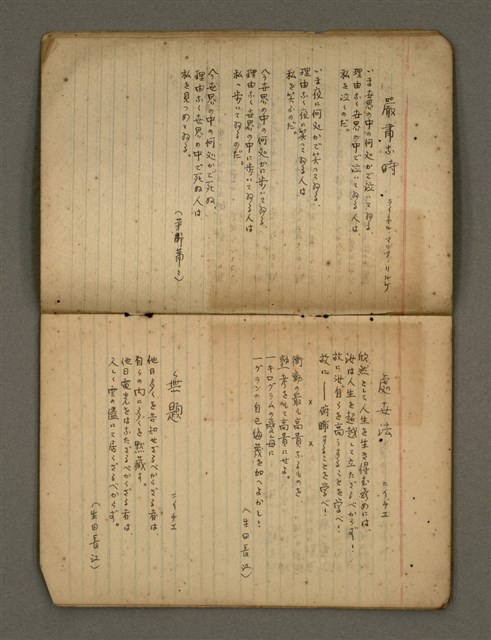 嚴肅な時
ライネル・マリア・リルケ
いま世界の中の何処かで泣いてゐる、
理由なく世界の中で泣いてゐる人は
私を泣くのだ。
いま夜に何処かで笑つてゐる、
理由なく夜に笑つてゐる人は
私を笑ふのだ。
今世界の中の何処かに歩いてゐる、
理由なく世界の中に歩いてゐる人は
私へ歩いてゐるのだ。
今世界の中の何処かで死ぬ、
理由なく世界の中で死ぬ人は
私を見つめてゐる。
(茅野蕭々)
處世法
ニイチエ
欣然として人生を生き得む為めには、
汝は人生を超越して立たざるべからず!
故に汝自らを高うすることを学べ!
故に——俯瞰することを学べ!
× × ×
衝動の最も高貴なるものを
熟考をもて高貴にせよ。
一キログラムの愛毎に
一グランの自己侮蔑を加へよかし!
(生田長江)
無題
ニイチエ
他日多くを告知せざるべからざる者は、
自らの内に多くを黙蔵す。
他日電光をはなたざるべからざる者は、
久しく雲儘にて居らざるべからず。
(生田長江)